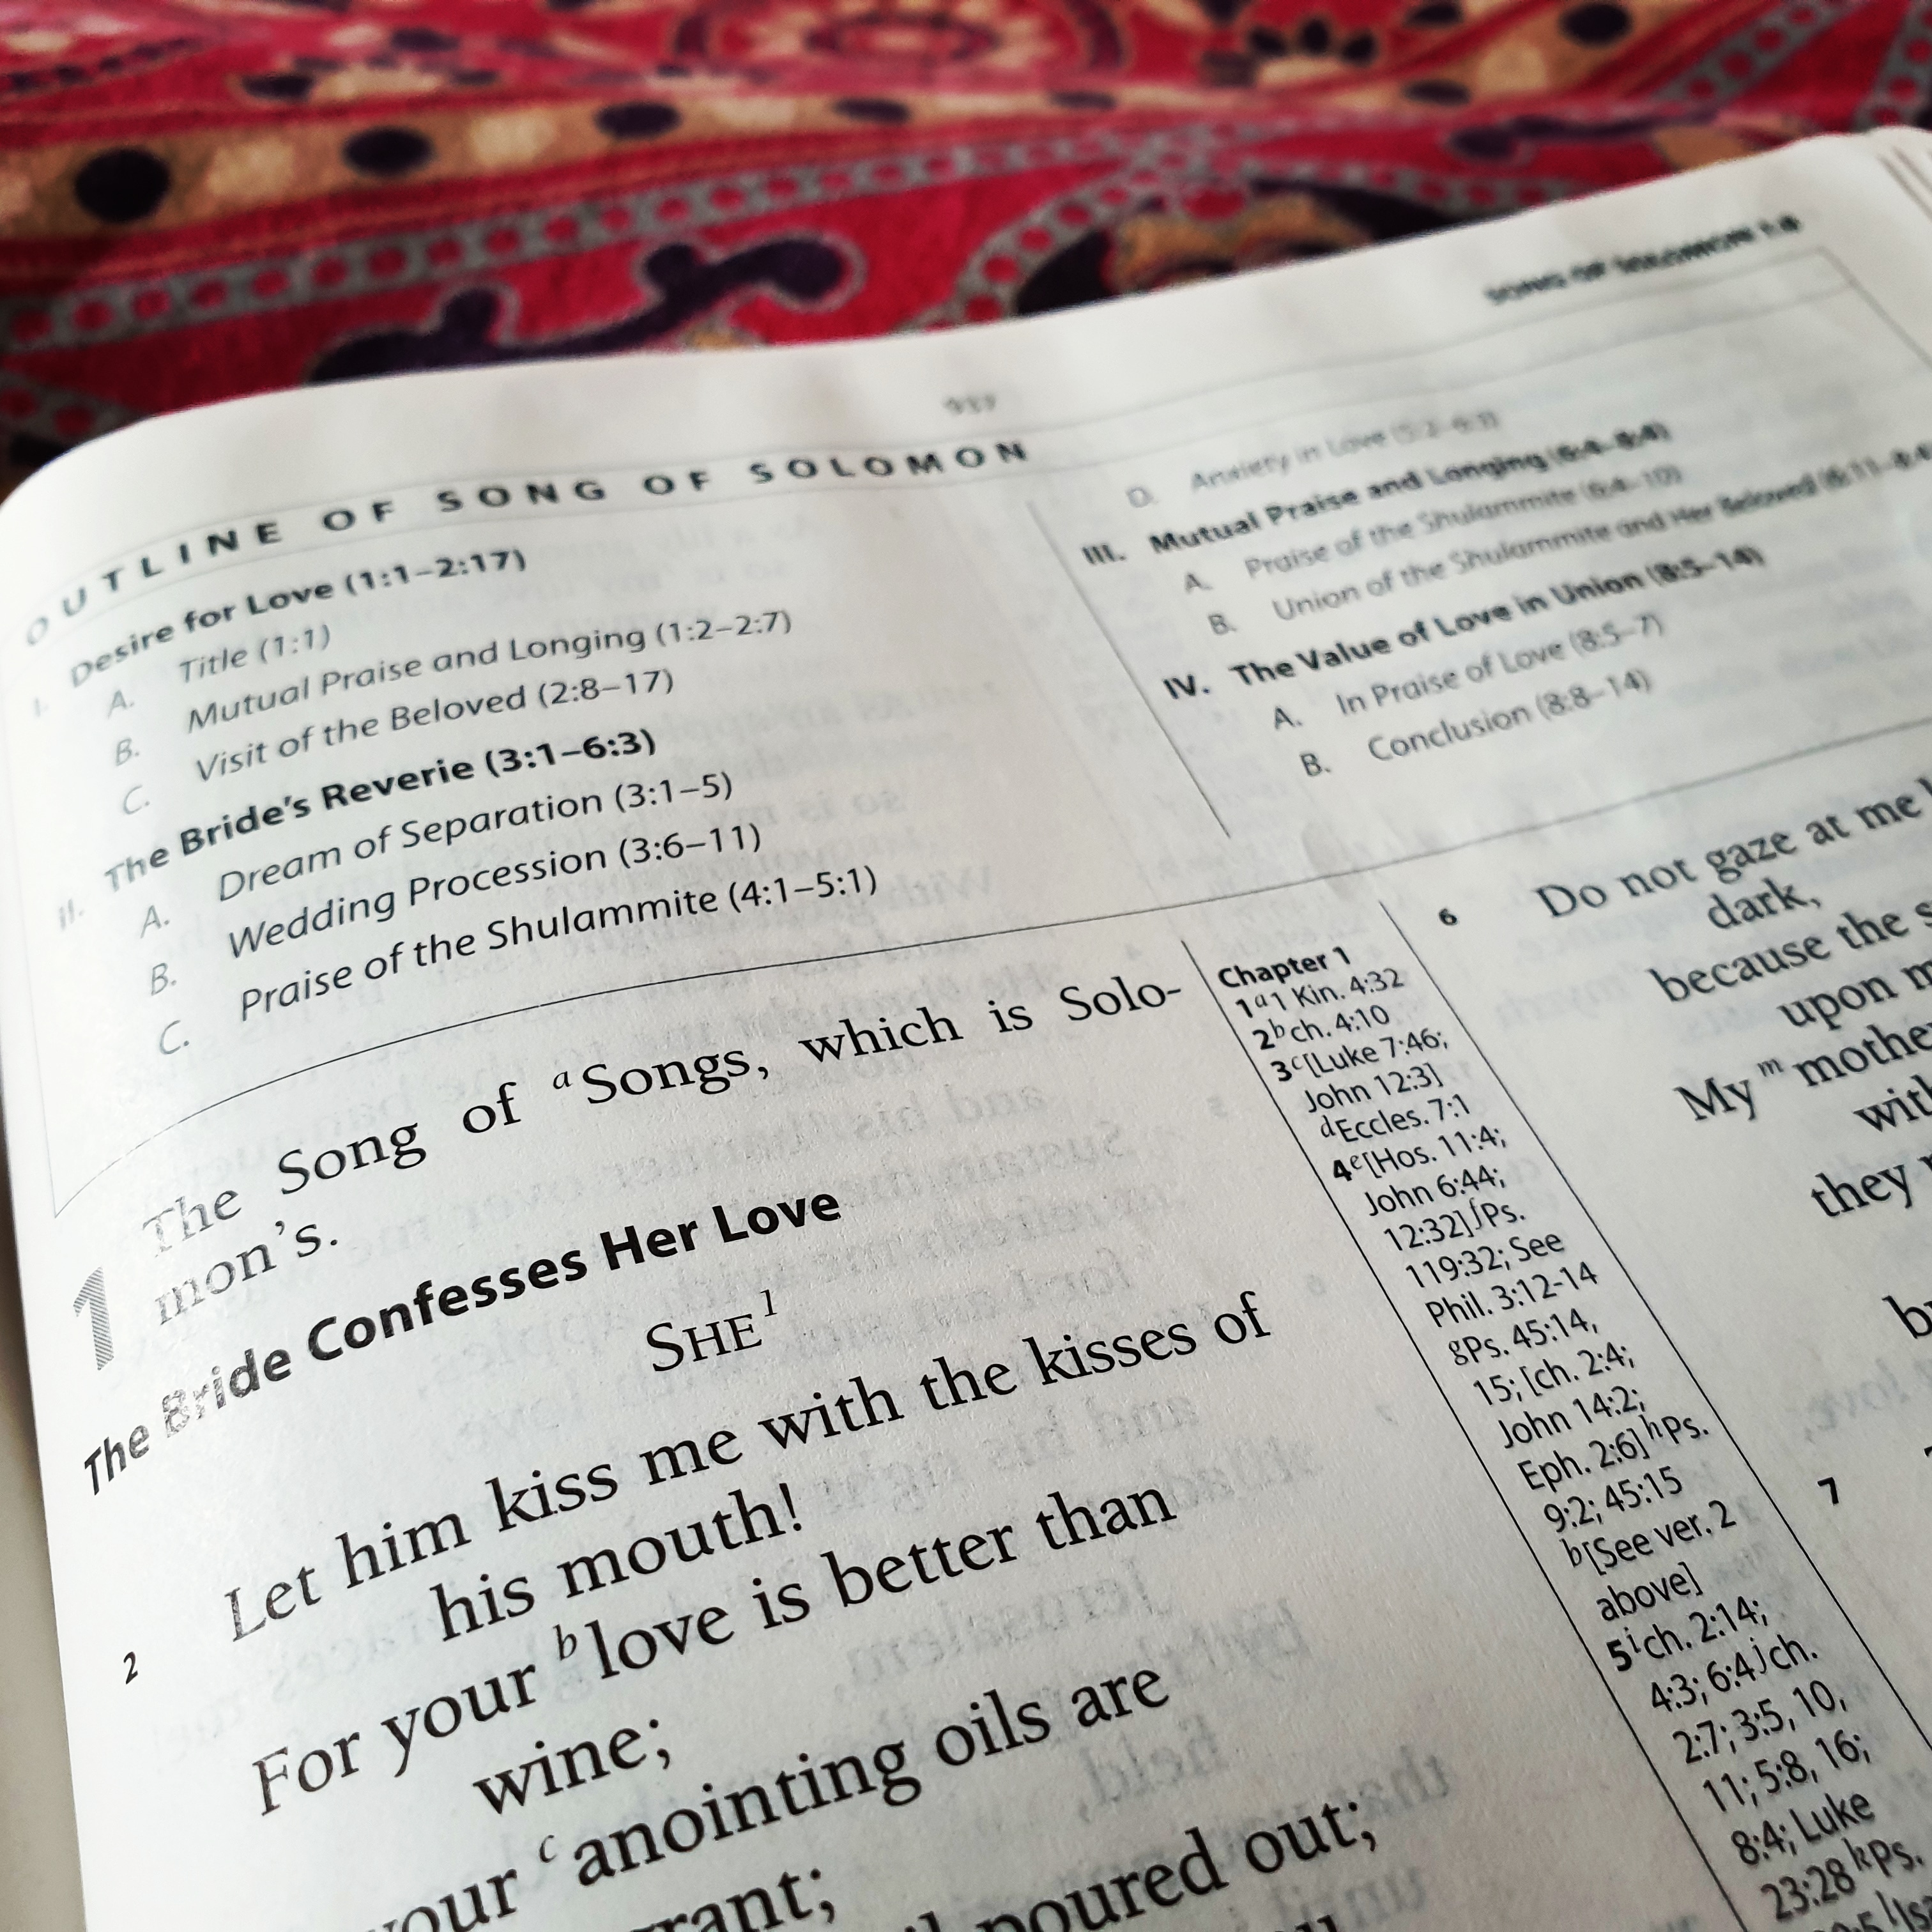 SONG OF SOLOMON 1:8
937
OUTLINE OF SONG OF SOLOMON
I. Desire for Love (1:1–2:17)
A. Title (1:1)
B. Mutual Praise and Longing (1:2–2:7)
C. Visit of the Beloved (2:8–17)
II. The Bride's Reverie (3:1–6:3)
A. Dream of Separation (3:1–5)
B. Wedding Procession (3:6–11)
C. Praise of the Shulammite (4:1–5:1)
D. Anxiety in Love (5:2–6:3)
III. Mutual Praise and Longing (6:4–8:4)
A. Praise of the Shulammite (6:4–10)
B. Union of the Shulammite and Her Beloved (6:11–8:4
IV. The Value of Love in Union (8:5–14)
A. In Praise of Love (8:5–7)
B. Conclusion (8:8–14)
1 The Song of a Songs, which is Solo-
mon's.
The Bride Confesses Her Love
SHE 1
2 Let him kiss me with the kisses of
his mouth!
For your b love is better than
wine;
your c anointing oils are
poured out;
Chapter 1
1 a 1 Kin. 4:32
2 b ch. 4:10
3 c [Luke 7:46;
John 12:3]
d Eccles. 7:1
4 e [Hos. 11:4;
John 6:44;
12:32] f Ps.
119:32; See
Phil. 3:12-14
g Ps. 45:14,
15; [ch. 2:4;
John 14:2;
Eph. 2:6] h Ps.
9:2; 45:15
b [See ver. 2
above]
5 i ch. 2:14;
4:3; 6:4 j ch.
2:7; 3:5, 10,
11; 5:8, 16;
8:4; Luke
23:28 k Ps.
6 Do not gaze at me
dark,
because the
upon
My m
they
7